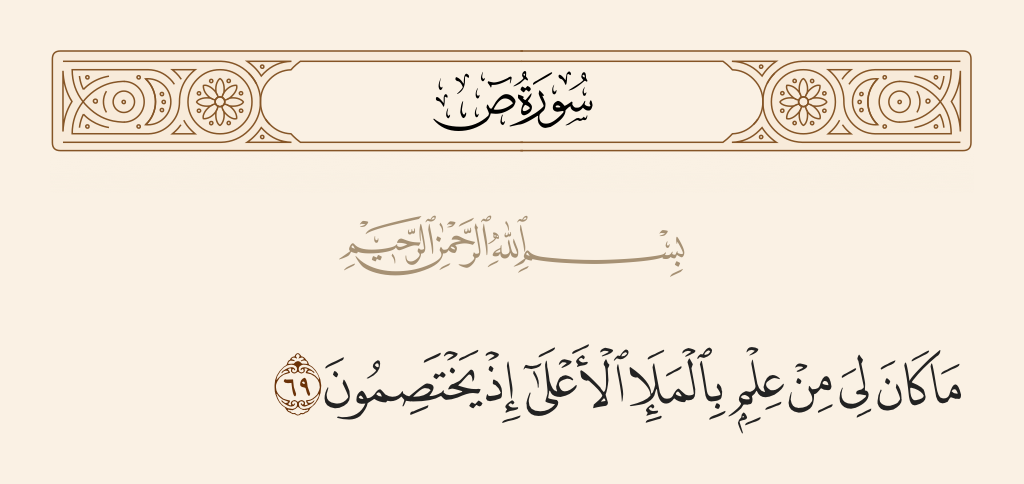 سُورَةُ صٓ
بِسْمِ ٱللَّهِ ٱلرَّحْمَٰنِ ٱلرَّحِيمِ
مَا كَانَ لِىَ مِنْ عِلْمٍۭ بِٱلْمَلَإِ ٱلْأَعْلَىٰٓ إِذْ يَخْتَصِمُونَ ٦٩